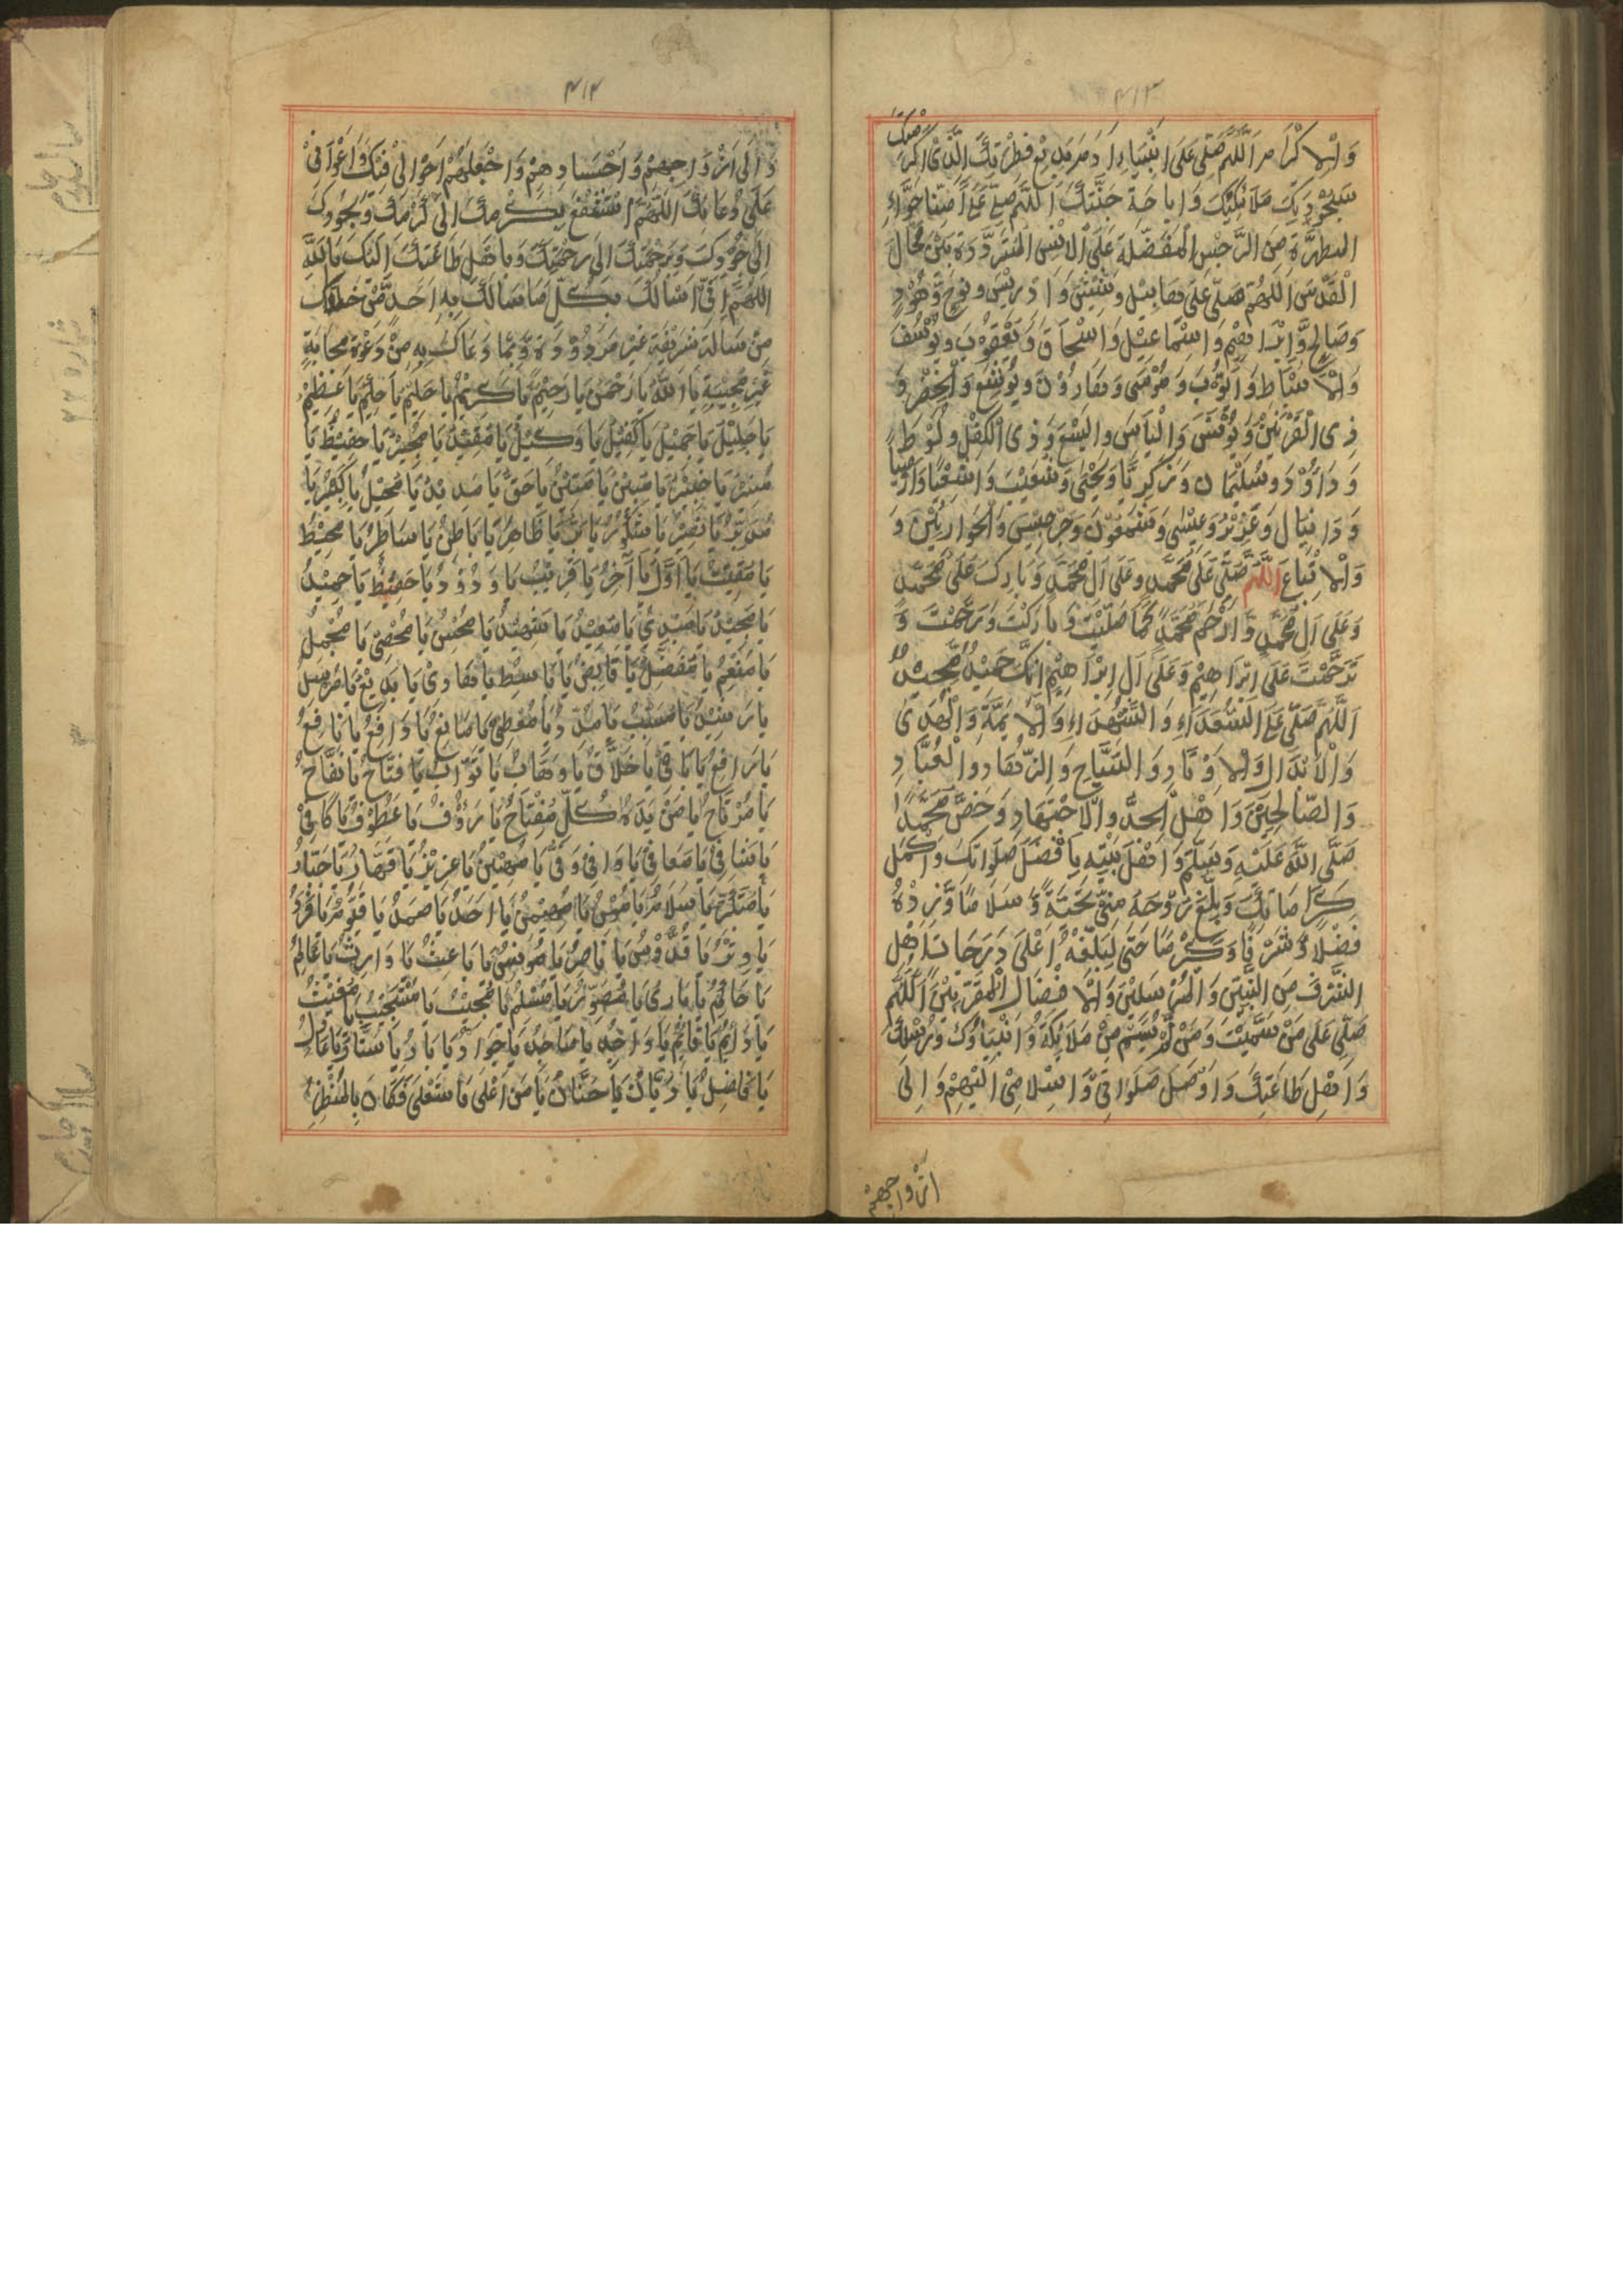 ۴۱۳
وَالْاِكْرَامِ اَللّٰهُمَّ صَلِّ عَلٰى اَنْبِيَاءِ اٰدَمَ بَدِيْعِ فِطْرَتِكَ الَّذِىْ اَكْرَمْتَهُ
بِسُجُوْدِ مَلَائِكَتِكَ وَاِبَاحَةِ جَنَّتِكَ اَللّٰهُمَّ صَلِّ عَلٰى اُمِّنَا حَوَّاءَ
الْمُطَهَّرَةِ مِنَ الرِّجْسِ الْمُفَضَّلَةِ عَلَى الْاِنْسِ الْمُتَرَدِّدَةِ بَيْنَ مَحَالِّ
الْقُدْسِ اَللّٰهُمَّ صَلِّ عَلٰى هَابِيْلَ وَشِيْثَ وَاِدْرِيْسَ وَنُوْحٍ وَّهُوْدٍ
وَصَالِحٍ وَّاِبْرَاهِيْمَ وَاِسْمَاعِيْلَ وَاِسْحَاقَ وَيَعْقُوْبَ وَيُوْسُفَ
وَالْاَسْبَاطِ وَاَيُّوْبَ وَمُوْسٰى وَهَارُوْنَ وَيُوْشَعَ وَالْخِضْرِ وَ
ذِى الْقَرْنَيْنِ وَيُوْنُسَ وَاِلْيَاسَ وَالْيَسَعَ وَذِى الْكِفْلِ وَلُوْطٍ
وَدَاوُدَ وَسُلَيْمَانَ وَزَكَرِيَّا وَيَحْيٰى وَشُعَيْبَ وَاَشْعِيَا وَاَرْمِيَا
وَدَانِيَالَ وَعُزَيْرٍ وَعِيْسٰى وَشَمْعُوْنَ وَجِرْجِيْسَ وَالْحَوَارِيِّيْنَ وَ
وَالْاَتْبَاعِ اَللّٰهُمَّ صَلِّ عَلٰى مُحَمَّدٍ وَعَلٰى اٰلِ مُحَمَّدٍ وَبَارِكْ عَلٰى مُحَمَّدٍ
وَعَلٰى اٰلِ مُحَمَّدٍ وَارْحَمْ مُحَمَّدًا كَمَا صَلَّيْتَ وَبَارَكْتَ وَرَحِمْتَ وَ
تَرَحَّمْتَ عَلٰى اِبْرَاهِيْمَ وَعَلٰى اٰلِ اِبْرَاهِيْمَ اِنَّكَ حَمِيْدٌ مَّجِيْدٌ
اَللّٰهُمَّ صَلِّ عَلَى السُّعَدَاءِ وَالشُّهَدَاءِ وَالْاَئِمَّةِ وَالْهُدٰى
وَالْاَبْدَالِ وَالْاَوْتَادِ وَالسُّيَّاحِ وَالزُّهَادِ وَالْعُبَّادِ
وَالصَّالِحِيْنَ وَاَهْلِ الْجِدِّ وَالْاِجْتِهَادِ وَخُصَّ مُحَمَّدًا
صَلَّى اللّٰهُ عَلَيْهِ وَسَلَّمَ وَاَهْلَ بَيْتِهِ بِاَفْضَلِ صَلَوَاتِكَ وَاَكْمَلِ
كَرَامَاتِكَ وَبَلِّغْ رُوْحَهُ مِنِّىْ تَحِيَّةً وَّسَلَامًا وَّزِدْهُ
فَضْلًا وَّشَرَفًا وَكَرَمًا حَتّٰى تُبَلِّغَهُ اَعْلٰى دَرَجَاتِ اَهْلِ
الشَّرَفِ مِنَ النَّبِيِّيْنَ وَالْمُرْسَلِيْنَ وَالْاَفْضَالِ الْمُقَرَّبِيْنَ اَللّٰهُمَّ
صَلِّ عَلٰى مَنْ سَمَّيْتُ وَمَنْ لَّمْ نُسَمِّ مِنْ مَلَائِكَةٍ وَاَنْبِيَاؤُكَ وَرُسُلِكَ
وَاَهْلِ طَاعَتِكَ وَاَوْصِلْ صَلَوَاتِىْ وَاِسْلَامِىْ اِلَيْهِمْ وَاِلٰى
اَزْوَاجِهِمْ
۴۱۴
وَاِلٰى اَزْوَاجِهِمْ وَاَجْسَادِهِمْ وَاجْعَلْهُمْ اِخْوَانِىْ فِيْكَ وَاَعْوَانِىْ
عَلٰى دُعَائِكَ اَللّٰهُمَّ اَسْتَشْفِعُ بِكَرَمِكَ اِلٰى كَرَمِكَ وَبِجُوْدِكَ
اِلٰى جُوْدِكَ وَبِرَحْمَتِكَ اِلٰى رَحْمَتِكَ وَبِاَهْلِ طَاعَتِكَ اِلَيْكَ يَا اَللّٰهُ
اَللّٰهُمَّ اِنِّىْ اَسْاَلُكَ بِكُلِّ مَا سَاَلَكَ بِهِ اَحَدٌ مِّنْ خَلْقِكَ
مِنْ مَسْاَلَةٍ شَرِيْفَةٍ غَيْرِ مَرْدُوْدَةٍ وَّبِمَا دَعَاكَ بِهِ مِنْ دَعْوَةٍ مُجَابَةٍ
غَيْرِ مُجِيْبَةٍ يَا اَللّٰهُ يَا رَحْمٰنُ يَا رَحِيْمُ يَا كَرِيْمُ يَا حَلِيْمُ يَا حَلِيْمُ يَا عَظِيْمُ
يَا جَلِيْلُ يَا جَمِيْلُ يَا كَفِيْلُ يَا وَكِيْلُ يَا مُقِيْتُ يَا مُجِيْرُ يَا حَفِيْظُ يَا
مُنِيْرُ يَا خَبِيْرُ يَا مُبِيْنُ يَا مَتِيْنُ يَا حَقُّ يَا مَدِيْدُ يَا مُحِيْلُ يَا كَبِيْرُ يَا
مُدَبِّرُ يَا نَصِيْرُ يَا شَكُوْرُ يَا بَرُّ يَا ظَاهِرُ يَا بَاطِنُ يَا سَاطِرُ يَا مُحِيْطُ
يَا مُقِيْتُ يَا اَوَّلُ يَا اٰخِرُ يَا قَرِيْبُ يَا وَدُوْدُ يَا حَفِيْظُ يَا حَمِيْدُ
يَا مَجِيْدُ يَا مُبْدِئُ يَا مُعِيْدُ يَا شَهِيْدُ يَا مُحْسِنُ يَا مُحْصِىْ يَا مُجْمِلُ
يَا مُنْعِمُ يَا مُفَضِّلُ يَا قَابِضُ يَا بَاسِطُ يَا هَادِىْ يَا بَدِيْعُ يَا مُرْسِلُ
يَا رَشِيْدُ يَا مُسَبِّبُ يَا مُسَدِّدُ يَا مُعْطِىْ يَا مَانِعُ يَا دَافِعُ يَا نَافِعُ
يَا رَافِعُ يَا بَاقِىْ يَا خَلَّاقُ يَا وَهَّابُ يَا تَوَّابُ يَا فَتَّاحُ يَا نَفَّاحُ
يَا مُرْتَاحُ يَا مَنْ بِيَدِهِ كُلُّ مِفْتَاحٍ يَا رَؤُوْفُ يَا عَطُوْفُ يَا كَافِىْ
يَا شَافِىْ يَا مُعَافِىْ يَا وَافِىْ وَفِىُّ يَا مُهَيْمِنُ يَا عَزِيْزُ يَا قَهَّارُ يَا جَبَّارُ
يَا مُتَكَبِّرُ يَا سَلَامُ يَا مُؤْمِنُ يَا مُهَيْمِنُ يَا اَحَدُ يَا صَمَدُ يَا قَيُّوْمُ يَا فَرْدُ
يَا وِتْرُ يَا قُدُّوْسُ يَا نَاصِرُ يَا مُوْنِسُ يَا بَاعِثُ يَا وَارِثُ يَا عَالِمُ
يَا حَاكِمُ يَا بَارِئُ يَا مُصَوِّرُ يَا مُسَلِّمُ يَا مُجِيْبُ يَا مُسْتَجِيْبُ يَا مُغِيْثُ
يَا دَائِمُ يَا قَائِمُ يَا وَاحِدُ يَا مَاجِدُ يَا جَوَادُ يَا بَارُّ يَا سَتَّارُ يَا عَادِلُ
يَا فَاضِلُ يَا دَيَّانُ يَا حَنَّانُ يَا مَنْ اَعْلٰى فَاسْتَعْلٰى فَكَانَ بِالْمَنْظَرِ